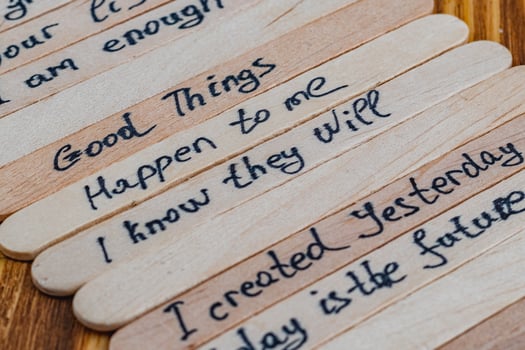 our
I am enough
Good Things
Happen to me
I know they will
I created Yesterday
day is the future